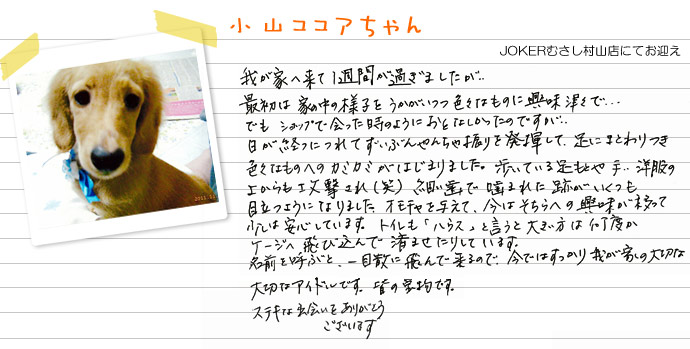 小山ココアちゃん
JOKERむさし村山店にてお迎え
我が家へ来て1週間が過ぎましたが..
最初は家の中の様子をうかがいつつ色々なものに興味津々で...
でもショップで会った時のようにおとなしかったのですが..
日が経つにつれてずいぶんやんちゃ振りを発揮して、足にまとわりつき
色々なものへのカミカミがはじまりました。歩いている足もとや手、洋服の
上からも攻撃され(笑) 細い歯で噛まれた跡がいくつも
目立つようになりました。オモチャを与えて、今はそちらへの興味が移って
少しは安心しています。トイレも「ハウス」と言うと大きい方は何度か
ケージへ飛び込んで済ませたりしています。
名前を呼ぶと、一目散に飛んで来るので、今ではすっかり我が家の大切な
大切なアイドルです。皆の宝物です。
ステキな出会いをありがとう
ございます
2011.11